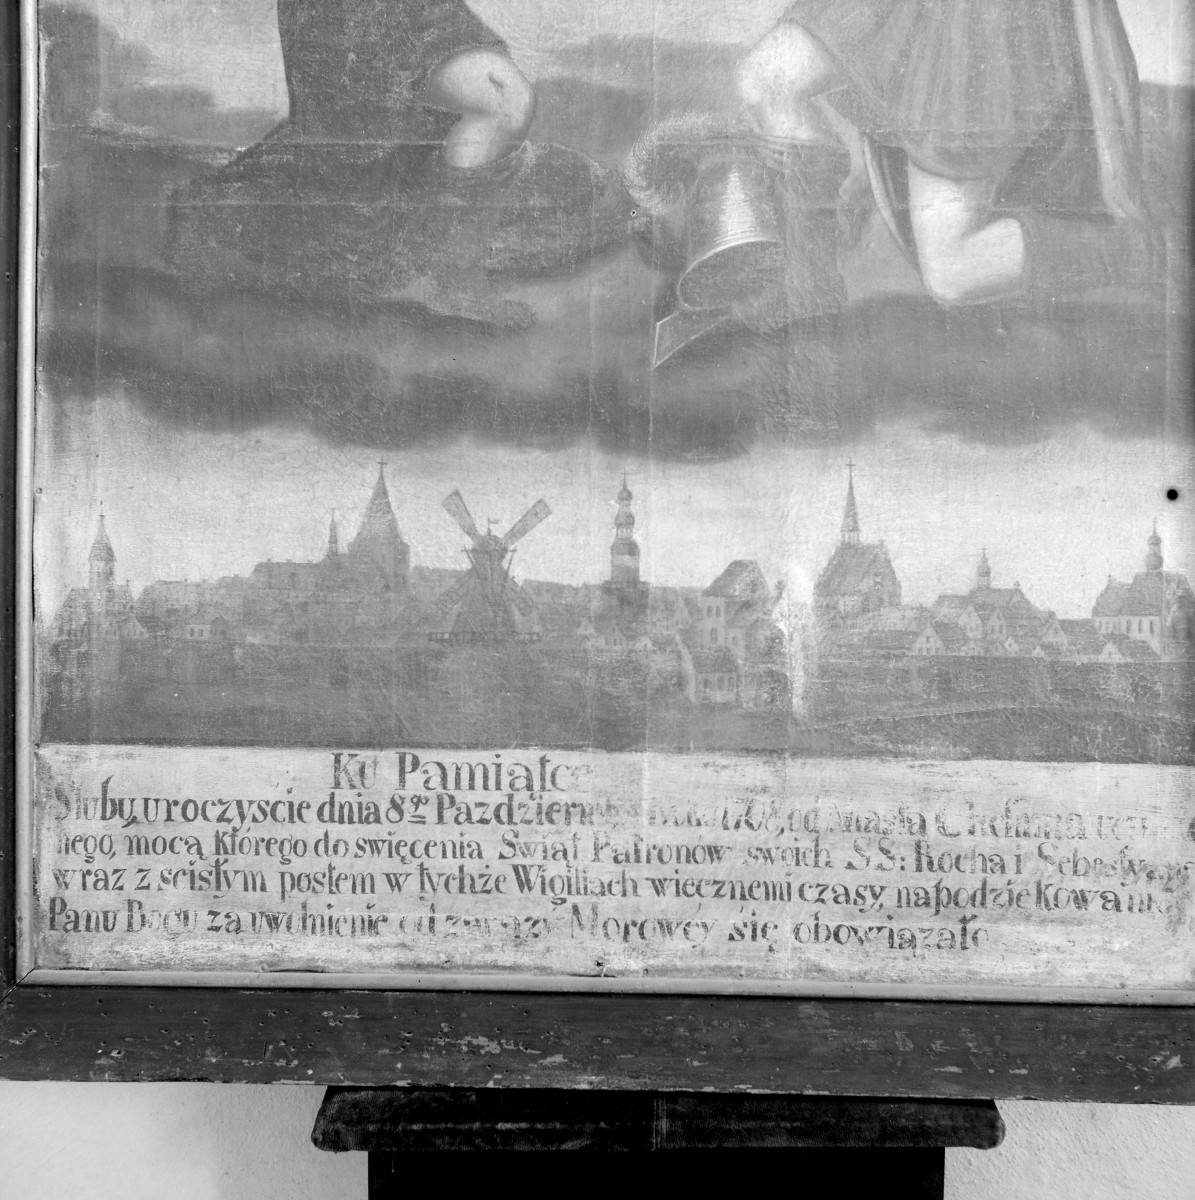 Ku Pamiątce
Slubų uroczyście dnia 8go Pazdziernika Roku 1708, od Miasta Chełmna uczynio
nego, mocą ktorego do swięcenia Swiąt Patronow swoich S.S: Rocha i Sebestyana
wraz z scisłym postem w tychże Wigiliach wiecznemi czasy, na podzięKowanie
Panu Bogu za uwolnienie od zarazy Morowey się obowiązało